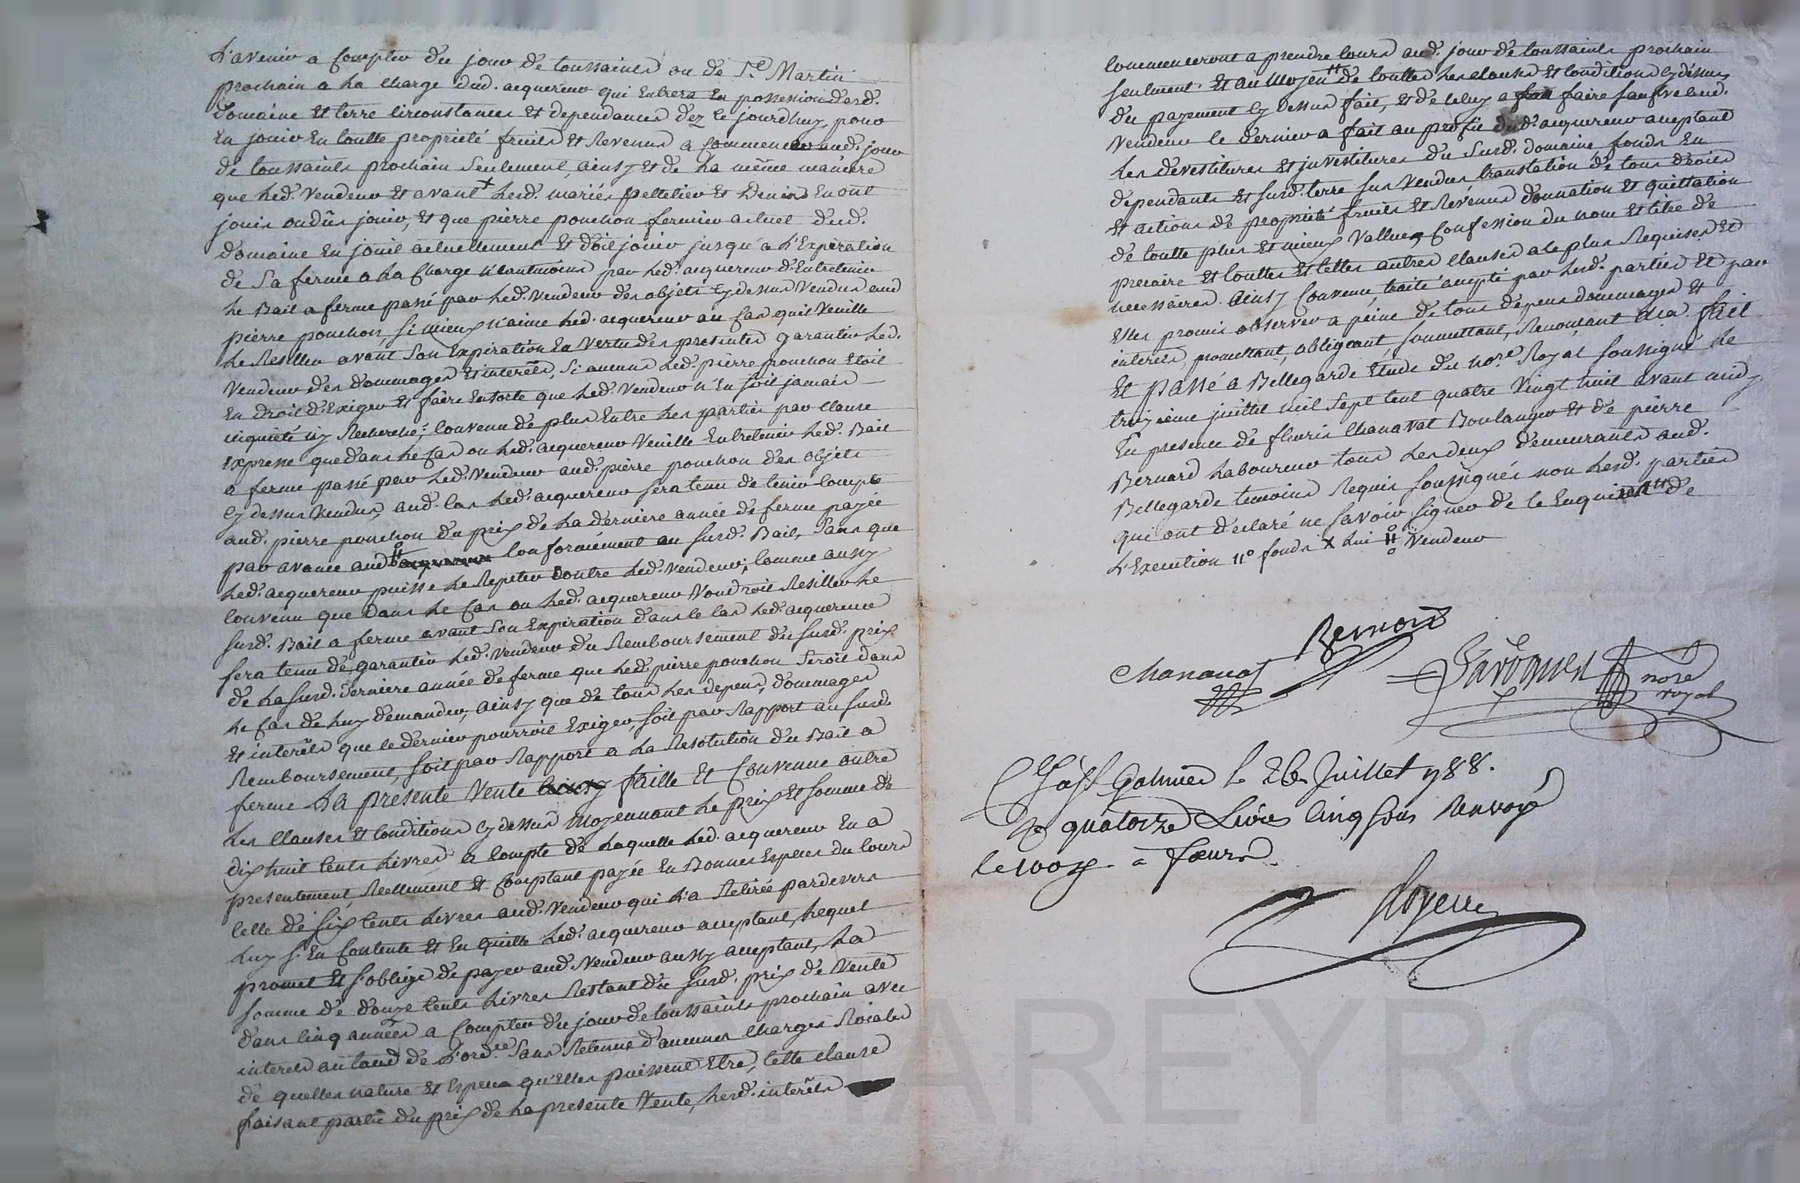 d'avenir a Compter du jour de toussaints ou de S.t Martin
prochain a la charge dud. acquereur qui Entrera En possession desd.
Domaine et terre circonstances et dependances dez ce jourdhuy, pour
En jouir En toutte proprieté fruits et Revenus a commencer aud. jour
de toussaints prochain seulement, ainsy et de la même manière
que led. Vendeur et avant lesd. mariés pelletier et En ont
jouis ou dûs jouir, et que pierre ponchon fermier actuel dud.
domaine En jouit actuellement et doit jouir jusqu'a l'Expiration
de sa ferme a la Charge neantmoins par led. acquereur d'Entretenir
le Bail a ferme passé par led. Vendeur des objets cy dessus Vendus aud
pierre ponchon, si mieux n'aime led. acquereur au Cas quil Veuille
le Resillier avant son Expiration En Vertu des presentes garantir led.
Vendeur des dommages et interêts, si aucuns led. pierre ponchon etoit
En Droit d'Exiger et faire Ensorte que led. Vendeur n'En soit jamais
inquieté ny Recherché; Convenu de plus Entre les parties par clause
expresse que dans le Cas ou led. acquereur Veuille Entretenir led. Bail
a ferme passé par led. Vendeur aud. pierre ponchon des objets
cy dessus Vendus, aud. Cas led. acquereur sera tenu de tenir Compte
aud. pierre ponchon du prix de la derniere année de ferme payée
par avance aud. Conformément au susd. Bail, sans que
led. acquereur puisse le Repeter contre led. Vendeur, Comme aussy
Convenu que dans le Cas ou led. acquereur Voudroit Resillier le
susd. Bail a ferme avant son Expiration dans le Cas led. acquereur
sera tenu de garantir led. Vendeur du Remboursement du susd. prix
de la susd. derniere année de ferme que led. pierre ponchon seroit dans
le Cas de luy demander, ainsy que de tous les depens, dommages
et interêts que ce dernier pourroit Exiger, soit par Rapport au susd.
Remboursement, soit par Rapport a la Resolution du Bail a
ferme La presente Vente faitte et Convenue outre
les clauses et Conditions cy dessus moyennant le prix et somme de
dix huit cents livres, a Compte de laquelle led. acquereur En a
presentement, Reellement et Comptant payée En Bonnes Especes du Cours
Celle de six Cents livres aud. Vendeur qui l'a Retirée pardevers
luy s'En Contente et En quitte led. acquereur acceptant, lequel
promet et s'oblige de payer aud. Vendeur aussy acceptant, la
somme de douze Cents livres Restant du susd. prix de Vente
dans Cinq années a Compter du jour de toussaints prochain avec
interets au taud de l'ord.ce sans Retenue d'aucunes charges Roiales
de quelles nature et Espece qu'Elles puissent Etre, Cette clause
faisant partie du prix de la presente Vente, lesd. interêts
Commenceront a prendre Cours aud. jour de toussaints prochain
seulment. et au moyen de touttes les clauses et Conditions cy dessus
du payement cy dessus fait, et de Celuy a faire sauf Ce aud.
Vendeur Ce dernier a fait au profit dud. acquereur acceptant
les devestitures et investitures du susd. domaine fonds En
dependants et susd. terre sus Vendus translation de tous droits
et actions de proprieté fruits et Revenus donnation et quittation
de toutte plus et mieux Vallue, Confession du nom et titre de
precaire et touttes et telles autres clauses a Ce plus Requises et
necessaires. Ainsy Convenu, traité accepté par lesd. parties et par
Elles promis observer a peine de tous depens dommages et
interets, promettant, obligeant, soumettant, Renonçant &ca. fait
et passé a Bellegarde Etude du no.re Royal soussigné le
treizieme juillet mil sept Cent quatre Vingt huit avant midy
En presence de fleuris chanavat Boulanger et de pierre
Bernard laboureur tous les deux demeurants aud.
Bellegarde temoins Requis soussignés non lesd. parties
qui ont declaré ne sçavoir signer de Ce Enquises de
l'Execution fonds X lui Vendeur
Chanavat
no.re
royal
Galmier le 26 Juillet 1788.
quatorze Livres Cinq sous Renvoyé
a feurs